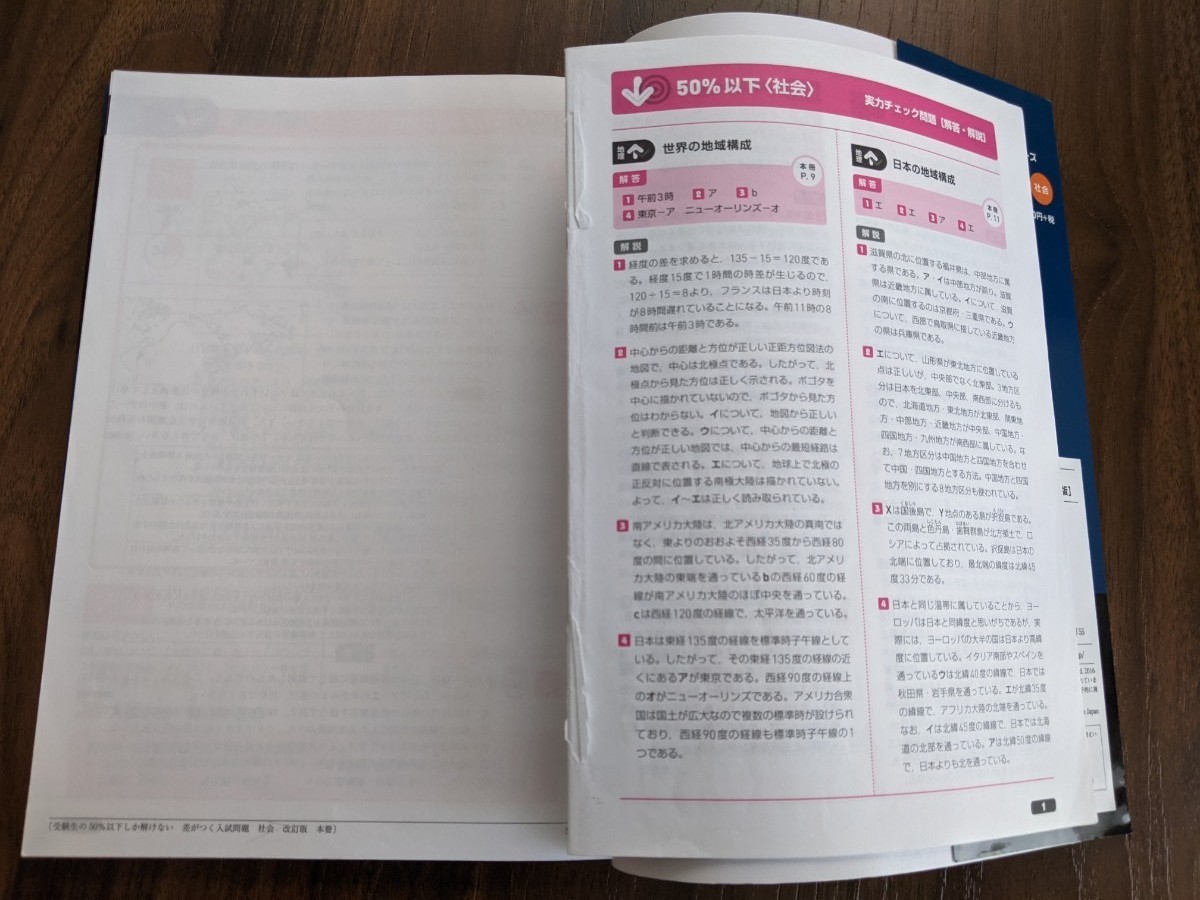 50%以下〈社会〉
実力チェック問題【解答・解説】
地理
世界の地域構成
解答
本冊
P.9
1 午前3時 2 ア 3 b
4 東京－ア ニューオーリンズ－オ
解説
1 経度の差を求めると，135－15＝120度であ
る。経度15度で1時間の時差が生じるので，
120÷15＝8より，フランスは日本より時刻
が8時間遅れていることになる。午前11時の8
時間前は午前3時である。
2 中心からの距離と方位が正しい正距方位図法の
地図で，中心は北極点である。したがって，北
極点から見た方位は正しく示される。ボゴタを
中心に描かれていないので，ボゴタから見た方
位はわからない。イについて，地図から正しい
と判断できる。ウについて，中心からの距離と
方位が正しい地図では，中心からの最短経路は
直線で表される。エについて，地球上で北極の
正反対に位置する南極大陸は描かれていない。
よって，イ～エは正しく読み取られている。
3 南アメリカ大陸は，北アメリカ大陸の真南では
なく，東よりのおおよそ西経35度から西経80
度の間に位置している。したがって，北アメリ
カ大陸の東端を通っているbの西経60度の経
線が南アメリカ大陸のほぼ中央を通っている。
cは西経120度の経線で，太平洋を通っている。
4 日本は東経135度の経線を標準時子午線として
いる。したがって，その東経135度の経線の近
くにあるアが東京である。西経90度の経線上
のオがニューオーリンズである。アメリカ合衆
国は国土が広大なので複数の標準時が設けられ
ており，西経90度の経線も標準時子午線の1
つである。
地理
日本の地域構成
解答
本冊
P.11
1 エ 2 エ 3 ア 4 エ
解説
1 滋賀県の北に位置する福井県は，中部地方に属
する県である。ア・イは中部地方が誤り。滋賀
県は近畿地方に属している。イについて，滋賀
の南に位置するのは京都府・三重県である。ウ
について，西部で鳥取県に接している近畿地方
の県は兵庫県である。
2 エについて，山形県が東北地方に位置している
点は正しいが，中央部でなく北東部。3地方区
分は日本を北東部，中央部，南西部に分けるも
ので，北海道地方・東北地方が北東部，関東地
方・中部地方・近畿地方が中央部，中国地方・
四国地方・九州地方が南西部に属している。な
お，7地方区分は中国地方と四国地方を合わせ
て中国・四国地方とする方法。中国地方と四国
地方を別にする8地方区分も使われている。
3 Xは国後島で，Y地点のある島が択捉島である。
この両島と色丹島・歯舞群島が北方領土で，ロ
シアによって占拠されている。択捉島は日本の
北端に位置しており，最北端の緯度は北緯45
度33分である。
4 日本と同じ温帯に属していることから，ヨー
ロッパは日本と同緯度と思いがちであるが，実
際には，ヨーロッパの大半の国は日本より高緯
度に位置している。イタリア南部やスペインを
通っているウは北緯40度の緯線で，日本では
秋田県・岩手県を通っている。エが北緯35度
の緯線で，アフリカ大陸の北端を通っている。
なお，イは北緯45度の緯線で，日本では北海
道の北部を通っている。アは北緯50度の緯線
で，日本よりも北を通っている。
1
〔受験生の50%以下しか解けない 差がつく入試問題 社会 改訂版 本冊〕
ズ
社会
0円+税
版】
2016
Japan